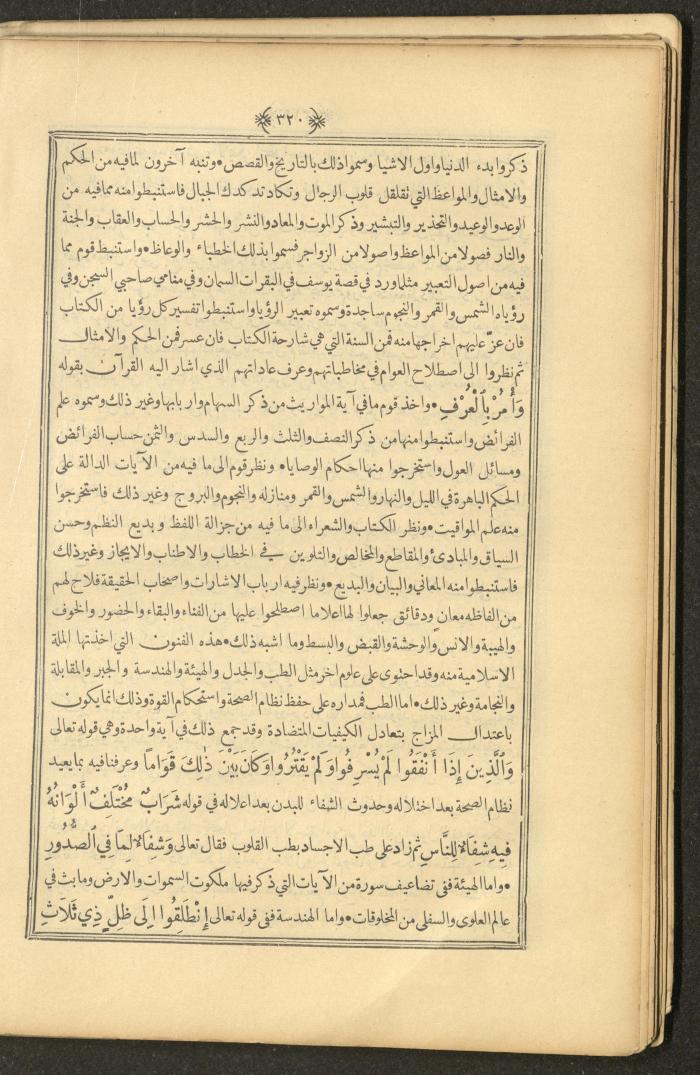 ٣٢٠
ذكروا بدء الدنيا واول الاشيا وسموا ذلك بالتاريخ والقصص • وتنبه آخرون لما فيه من الحكم
والامثال والمواعظ التي تقلقل قلوب الرجال وتكاد تدكدك الجبال فاستنبطوا منه مما فيه من
الوعد والوعيد والتحذير والتبشير وذكر الموت والمعاد والنشر والحشر والحساب والعقاب والجنة
والنار فصولا من المواعظ واصولا من الزواجر فسموا بذلك الخطباء والوعاظ • واستنبط قوم مما
فيه من اصول التعبير مثل ما ورد في قصة يوسف في البقرات السمان وفي منامي صاحبي السجن وفي
رؤياه الشمس والقمر والنجوم ساجدة وسموه تعبير الرؤيا واستنبطوا تفسير كل رؤيا من الكتاب
فان عزّ عليهم اخراجها منه فمن السنة التي هي شارحة الكتاب فان عسر فمن الحكم والامثال
ثم نظروا الى اصطلاح العوام في مخاطباتهم وعرف عاداتهم الذي اشار اليه القرآن بقوله
وَأْمُرْ بِٱلْعُرْفِ • واخذ قوم ما في آية المواريث من ذكر السهام واربابها وغير ذلك وسموه علم
الفرائض واستنبطوا منها من ذكر النصف والثلث والربع والسدس والثمن حساب الفرائض
ومسائل العول واستخرجوا منها احكام الوصايا • ونظر قوم الى ما فيه من الآيات الدالة على
الحكم الباهرة في الليل والنهار والشمس والقمر ومنازله والنجوم والبروج وغير ذلك فاستخرجوا
منه علم المواقيت • ونظر الكتاب والشعراء الى ما فيه من جزالة اللفظ وبديع النظم وحسن
السياق والمبادئ والمقاطع والمخالص والتلوين في الخطاب والاطناب والايجاز وغير ذلك
فاستنبطوا منه المعاني والبيان والبديع • ونظر فيه ارباب الاشارات واصحاب الحقيقة فلاح لهم
من الفاظه معانٍ ودقائق جعلوا لها اعلاما اصطلحوا عليها من الفناء والبقاء والحضور والخوف
والهيبة والانس والوحشة والقبض والبسط وما اشبه ذلك • هذه الفنون التي اخذتها الملة
الاسلامية منه وقد احتوى على علوم اخر مثل الطب والجدل والهيئة والهندسة والجبر والمقابلة
والنجامة وغير ذلك • اما الطب فمداره على حفظ نظام الصحة واستحكام القوة وذلك انما يكون
باعتدال المزاج بتعادل الكيفيات المتضادة وقد جمع ذلك في آية واحدة وهي قوله تعالى
وَٱلَّذِينَ إِذَا أَنْفَقُوا لَمْ يُسْرِفُوا وَلَمْ يَقْتُرُوا وَكَانَ بَيْنَ ذٰلِكَ قَوَامًا وعرفنا فيه بما يعيد
نظام الصحة بعد اختلاله وحدوث الشفاء للبدن بعد اعلاله في قوله شَرَابٌ مُخْتَلِفٌ أَلْوَانُهُ
فِيهِ شِفَاءٌ لِلنَّاسِ ثم زاد على طب الاجساد بطب القلوب فقال تعالى وَشِفَاءٌ لِمَا فِي ٱلصُّدُورِ
• واما الهيئة ففى تضاعيف سورة من الآيات التي ذكر فيها ملكوت السموات والارض وما بث في
عالم العلوى والسفلى من المخلوقات • واما الهندسة ففى قوله تعالى إِنْطَلِقُوا إِلَى ظِلٍّ ذِي ثَلَاثِ